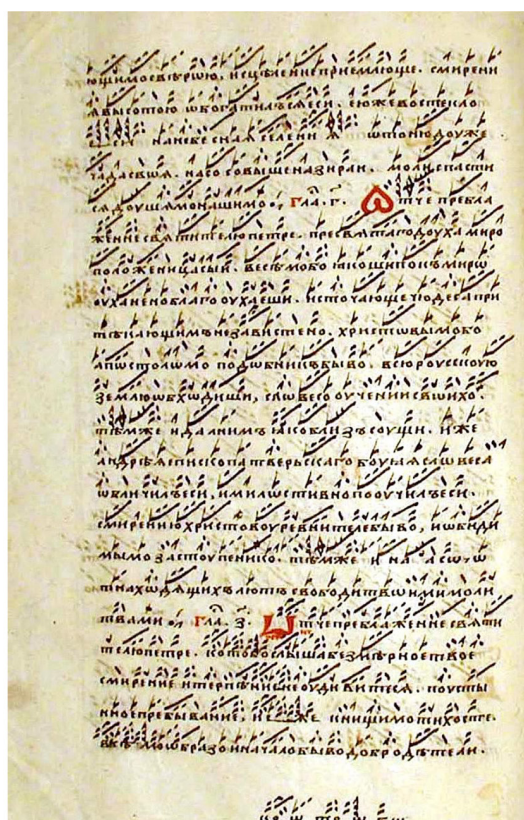 ющимо свѣршю. исцѣление приемлюще. смирени
я высотою ѡбогатилъ сѧ еси. еюже востекло
еси на небеснаѧ селениѧ ѿтонюдоуже
чада своѧ. насо совышеназираи. моли спасти
сѧ доушамо нашимо. Глаⷭ. г҃. Ѿтче пребла
жение свѧтителю петре. пресвѧтаго доуха миро
положеница сыи. весьмо бо ѩко шипокъ миръ
оуханено благооухаеши. источающе чюдеса при
тѣкающимъ независтено. христѡвымо бо
апѡстолѡмо подѡбникъ быво. всю роусскоую
землю ѡбхѡдиши, слѡвесо оучении свѡихо.
тѣмже и далнимъ ѩко близъ соущи. иже
андрѣѧ епископа тверьскаго боуыѧ слѡвеса
ѡбличилъ еси, и милѡстивно поооучилъ еси.
смирению христовоу ревнителе быво, и ѡбиди
мымо застоупенико. тѣмже и насо ѿ
тнахѡдѧщихъ лютъ свободи твѡими моли
твами. Глаⷭ. з҃. Ѿтче преблажение свѧти
телю петре. кото бо слыша безмѣрное твое
смирение и терпѣние не оудивитесѧ. поусты
нное пребывание, и еже к нищимо тихосте.
всѣмо ѡбразо и начало быво добродѣтели.